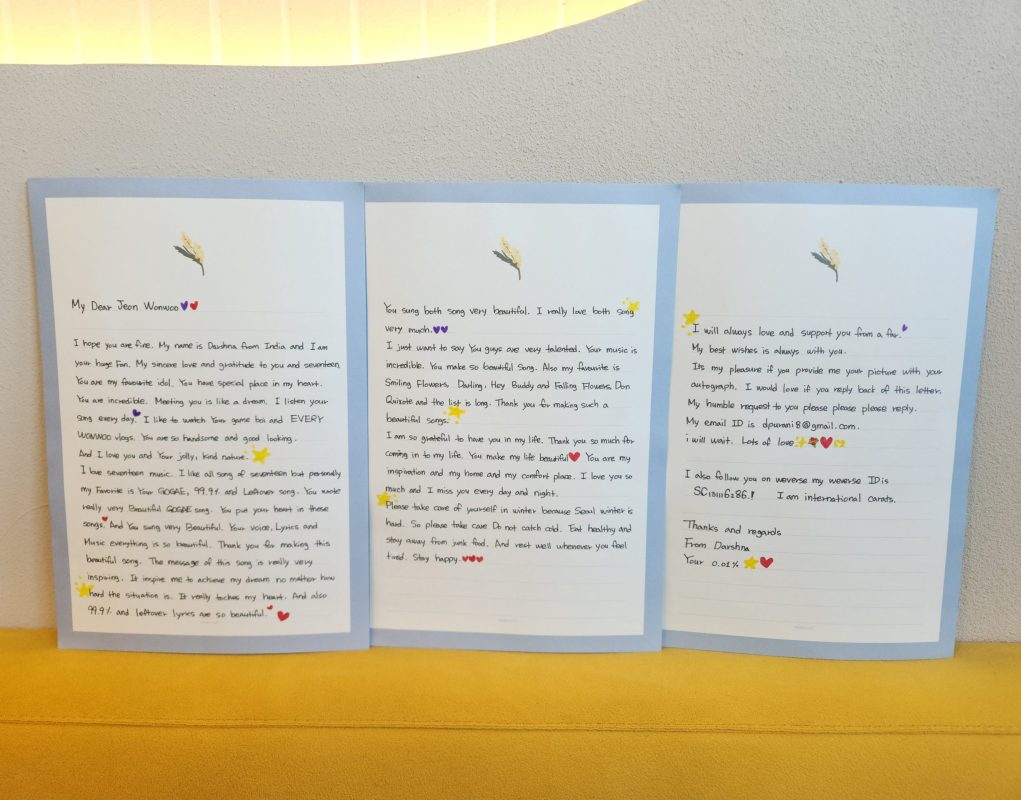 My Dear Jeon Wonwoo💜❤️
I hope you are fine. My name is Darshna from India and I am
your huge Fan. My sincere love and gratitude to you and seventeen.
You are my favourite idol. You have special place in my heart.
You are incredible. Meeting you is like a dream. I listen your
song every day💜. I like to watch Your game boi and EVERY
WONWOO vlogs. You are so handsome and good looking.
And I love you and Your jolly, kind nature.
I love seventeen music. I like all song of seventeen but personally
my Favorite is Your GOGAE, 99.9% and Leftover song. You wrote
really very Beautiful GOGAE song. You put your heart in these
songs. And You sung very Beautiful. Your voice, Lyrics and
Music everything is so beautiful. Thank you for making this
beautiful song. The message of this song is really very
inspiring. It inspire me to achieve my dream no matter how
hard the situation is. It really toches my heart. And also
99.9% and leftover lyrics are so beautiful.
You sung both song very beautiful. I really love both song
very much.💜💜
I just want to say You guys are very talented. Your music is
incredible. You make so beautiful Song. Also my favourite is
Smiling Flowers, Darling, Hey Buddy and Falling Flowers, Don
Quixote and the list is long. Thank you for making such a
beautiful songs.
I am so grateful to have you in my life. Thank you so much for
coming in to my life. You make my life beautiful❤️ You are my
inspiration and my home and my comfort place. I love you so
much and I miss you every day and night.
Please take care of yourself in winter because Seoul winter is
hard. So please take care Do not catch cold. Eat healthy and
stay away from junk food. And rest well whenever you feel
tired. Stay happy.❤️❤️❤️
I will always love and support you from a far.
My best wishes is always with you.
Its my pleasure if you provide me your picture with your
autograph. I would love if you reply back of this letter.
My humble request to you please please please reply.
My email ID is dpurani8@gmail.com.
i will wait. Lots of love
I also follow you on weverse my weverse ID is
I am international carats.
Thanks and regards
From Darshna
Your 0.01%